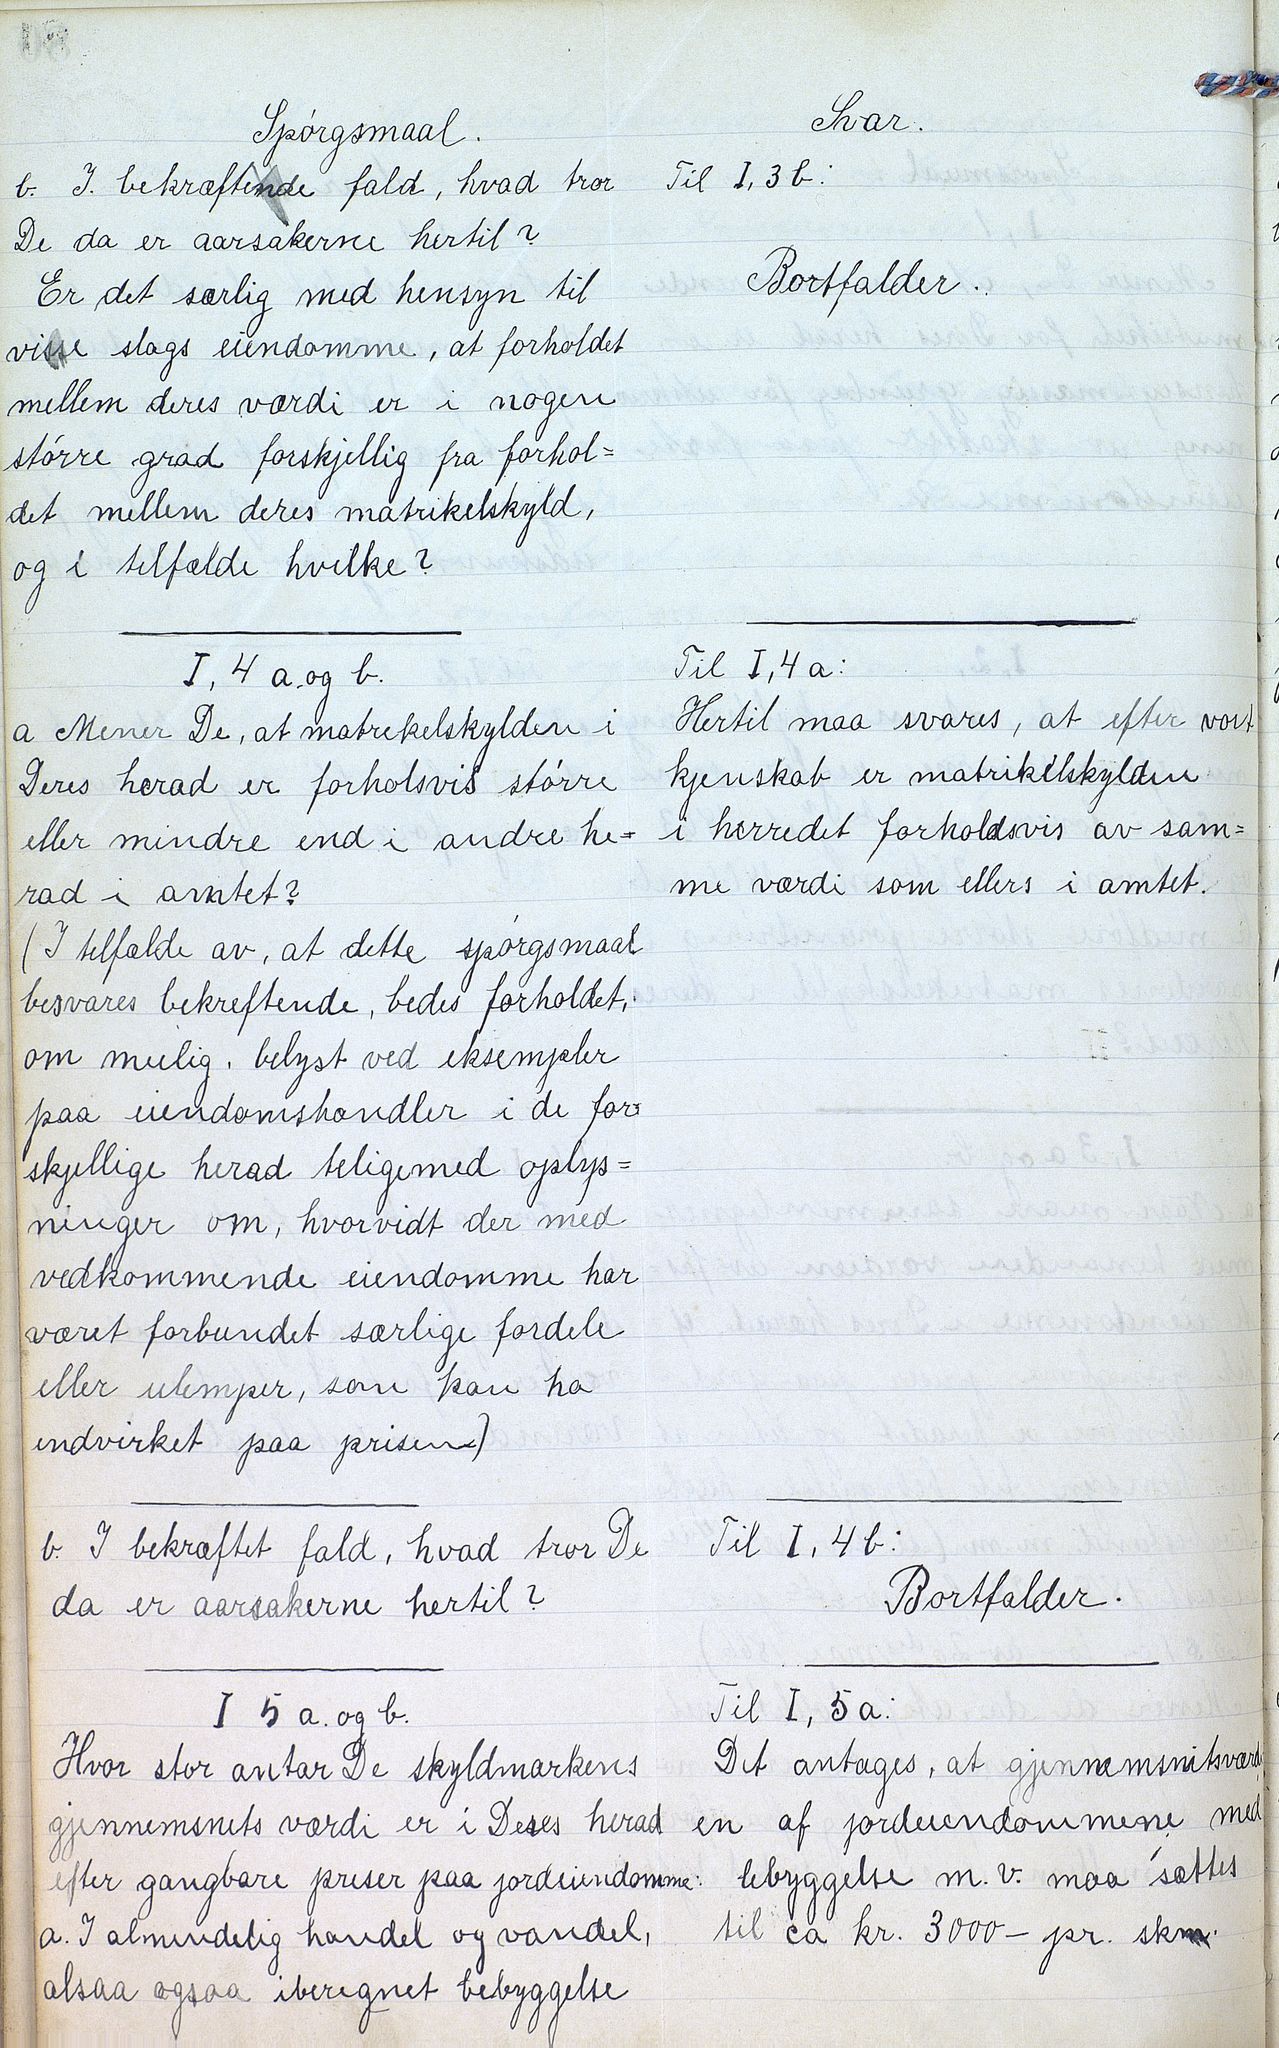 Spórgsmaal.
b. I. bekræftende fald, hvad tror
De da er aarsakerne hertil?
Er det særlig med hensyn til
visse slags eiendomme, at forholdet
mellem deres værdi er i nogen
større grad forskjellig fra forhol=
det mellem deres matrikelskyld,
og i telfælde hvilke?
I, 4 a. og b.
a Mener De, at matrekelskylden i
Deres herad er forholsvis større
eller mindre end i andre he=
rad i amtet?
(I telfælde av, at dette spórgsmaal
besvares bekreftende, bedes forholdet,
om muelig, belyst ved eksempler
paa eiendomshandler i de for=
skjellige herad teligemed oplys=
ninger om, hvorvidt der med
vedkommende eiendomme har
været forbundet særlige fordele
eller ulemper, som kan ha
indvirket paa prisen)
b. I bekræftet fald, hvad tror De
da er aarsakerne hertil?
I 5 a. og b.
Hvor stor antar De skyldmarkens
gjennemsnets værdi er i Deres herad
efter gangbare preser paa jordeiendomme:
a. I almendelig handel og vandel,
alsaa ogsaa iberegnet bebyggelse
Svar.
Til I, 3 b:
Bortfalder.
Til I, 4 a:
Hertil maa svares, at efter vort
kjenskab er matrikelskylden
i herredet forholdsvis av sam=
me værdi som ellers i amtet.
Til I, 4 b:
Bortfalder.
Til I, 5 a:
Det antages, at gjennemsnitsværdi
en af jordeiendommene med
bebyggelse m. v. maa sættes
til ca kr. 3000 - pr. skm.